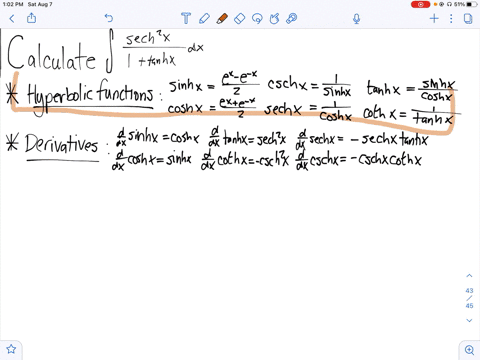 1:02 PM Sat Aug 7 51%
Calculate ∫ sech²x / (1 + tanhx) dx
* Hyperbolic functions: sinhx = (eˣ - e⁻ˣ)/2 cschx = 1/sinhx tanhx = sinhx/coshx
coshx = (eˣ + e⁻ˣ)/2 sechx = 1/coshx cothx = 1/tanhx
* Derivatives: d/dx sinhx = coshx d/dx tanhx = sech²x d/dx sechx = - sechx tanhx
d/dx coshx = sinhx d/dx cothx = -csch²x d/dx cschx = -cschx cothx
43
/
45